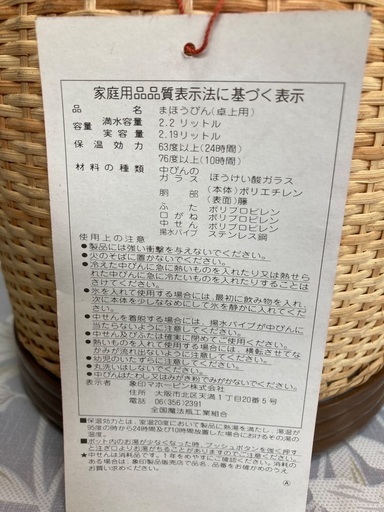 家庭用品品質表示法に基づく表示
品名 まほうびん(卓上用)
容量 満水容量 2.2リットル
実容量 2.19リットル
保温効力 63度以上(24時間)
76度以上(10時間)
材料の種類 中びんのガラス ほうけい酸ガラス
胴部 (本体)ポリエチレン
(表面)籐
ふた ポリプロピレン
口がね ポリプロピレン
中せん ポリプロピレン
揚水パイプ ステンレス鋼
使用上の注意
●製品には強い衝撃を与えないでください。
●火のそばに置かないでください。
●冷えた中びんに急に熱いものを入れたり又は熱せられた中びんに急に冷たいものを入れたりすることはさけてください。
●氷を入れて使用する場合には、最初に飲み物を入れ、次に本体を少しななめにして氷を静かに入れてください。
●中せんを着脱する場合には、揚水パイプが中びんに当たらないように注意してください。
●中せん及びふたは確実に閉めてご使用ください。
●熱いものを入れて使用する場合には、横転させてなかみが流れ出ないように注意してください。
●幼児のいたずらに注意してください。
●丸洗いはしないでください。
●中びんはたわし又はみがき粉でみがかないでください。
表示者 象印マホービン株式会社
住所 大阪市北区天満1丁目20番5号
電話 06(356)2391
全国魔法瓶工業組合
●保温効力とは、室温20度において製品に熱湯を満たし、湯温が95度の時から24時間及び10時間放置した場合におけるその湯の温度。
●ポット内のお湯が少なくなった時、プッシュボタンを強く押すと注ぎ口よりお湯がちることがありますのでご注意ください。
★中せんは消耗品です。1年をめやすにご確認ください。消耗のある場合は、象印製品販売店で品名、品番をお確かめのうえお買い求めください。
Ⓐ